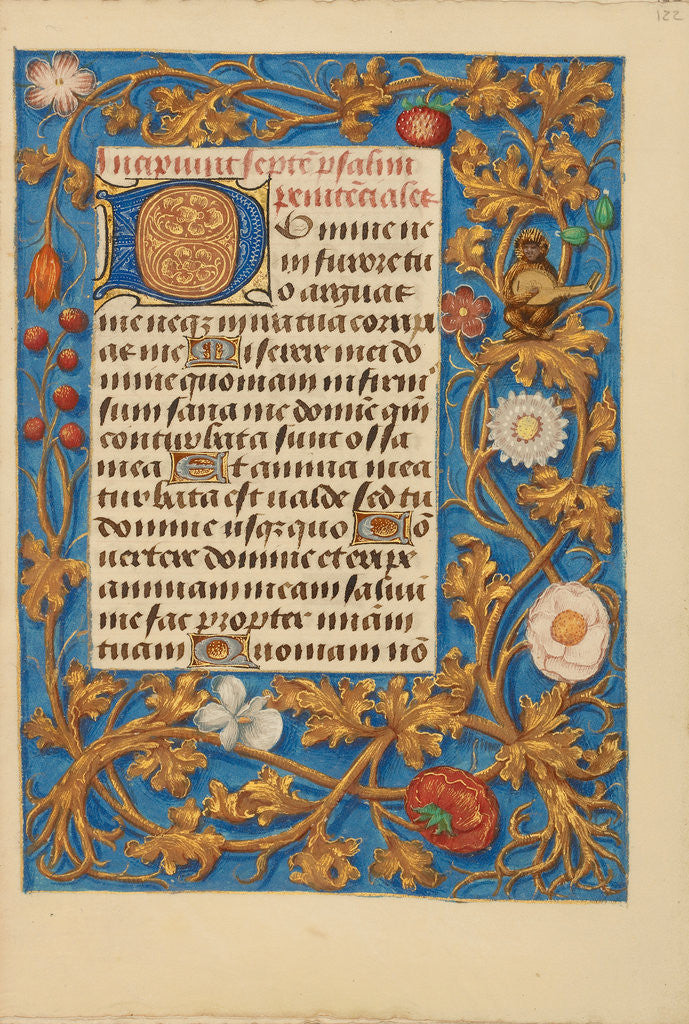 122
Incipiunt septē psalmi
penitēciales
Domine ne
in furore tu
o arguas
me neqz in ira tua corripi
as me Miserere mei do
mine quoniam infirm'
sum sana me domine qm̄
conturbata sunt ossa
mea Et anima mea
turbata est ualde sed tu
domine usqz quo Cō
uertere domine et eripe
animam meam saluū
me fac propter miam̄
tuam Quoniam nō